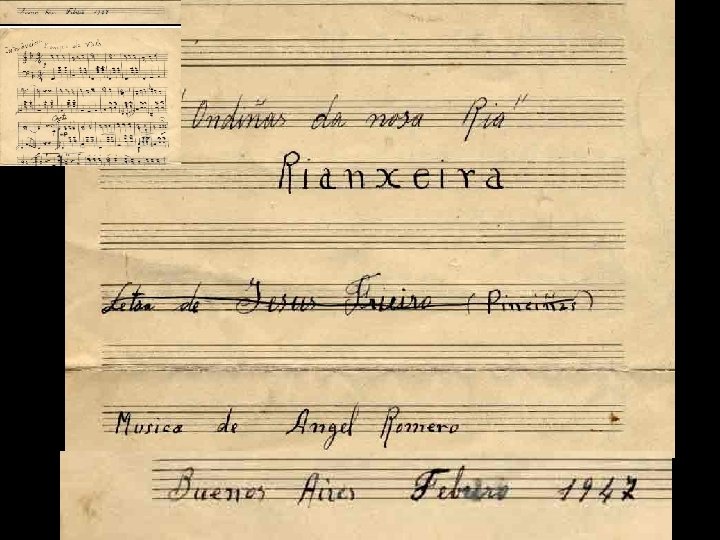 "Ondiñas da nosa Ria"
Rianxeira
Letra de Jesus Frieiro (Pinciñas)
Musica de Angel Romero
Buenos Aires Febrero 1947